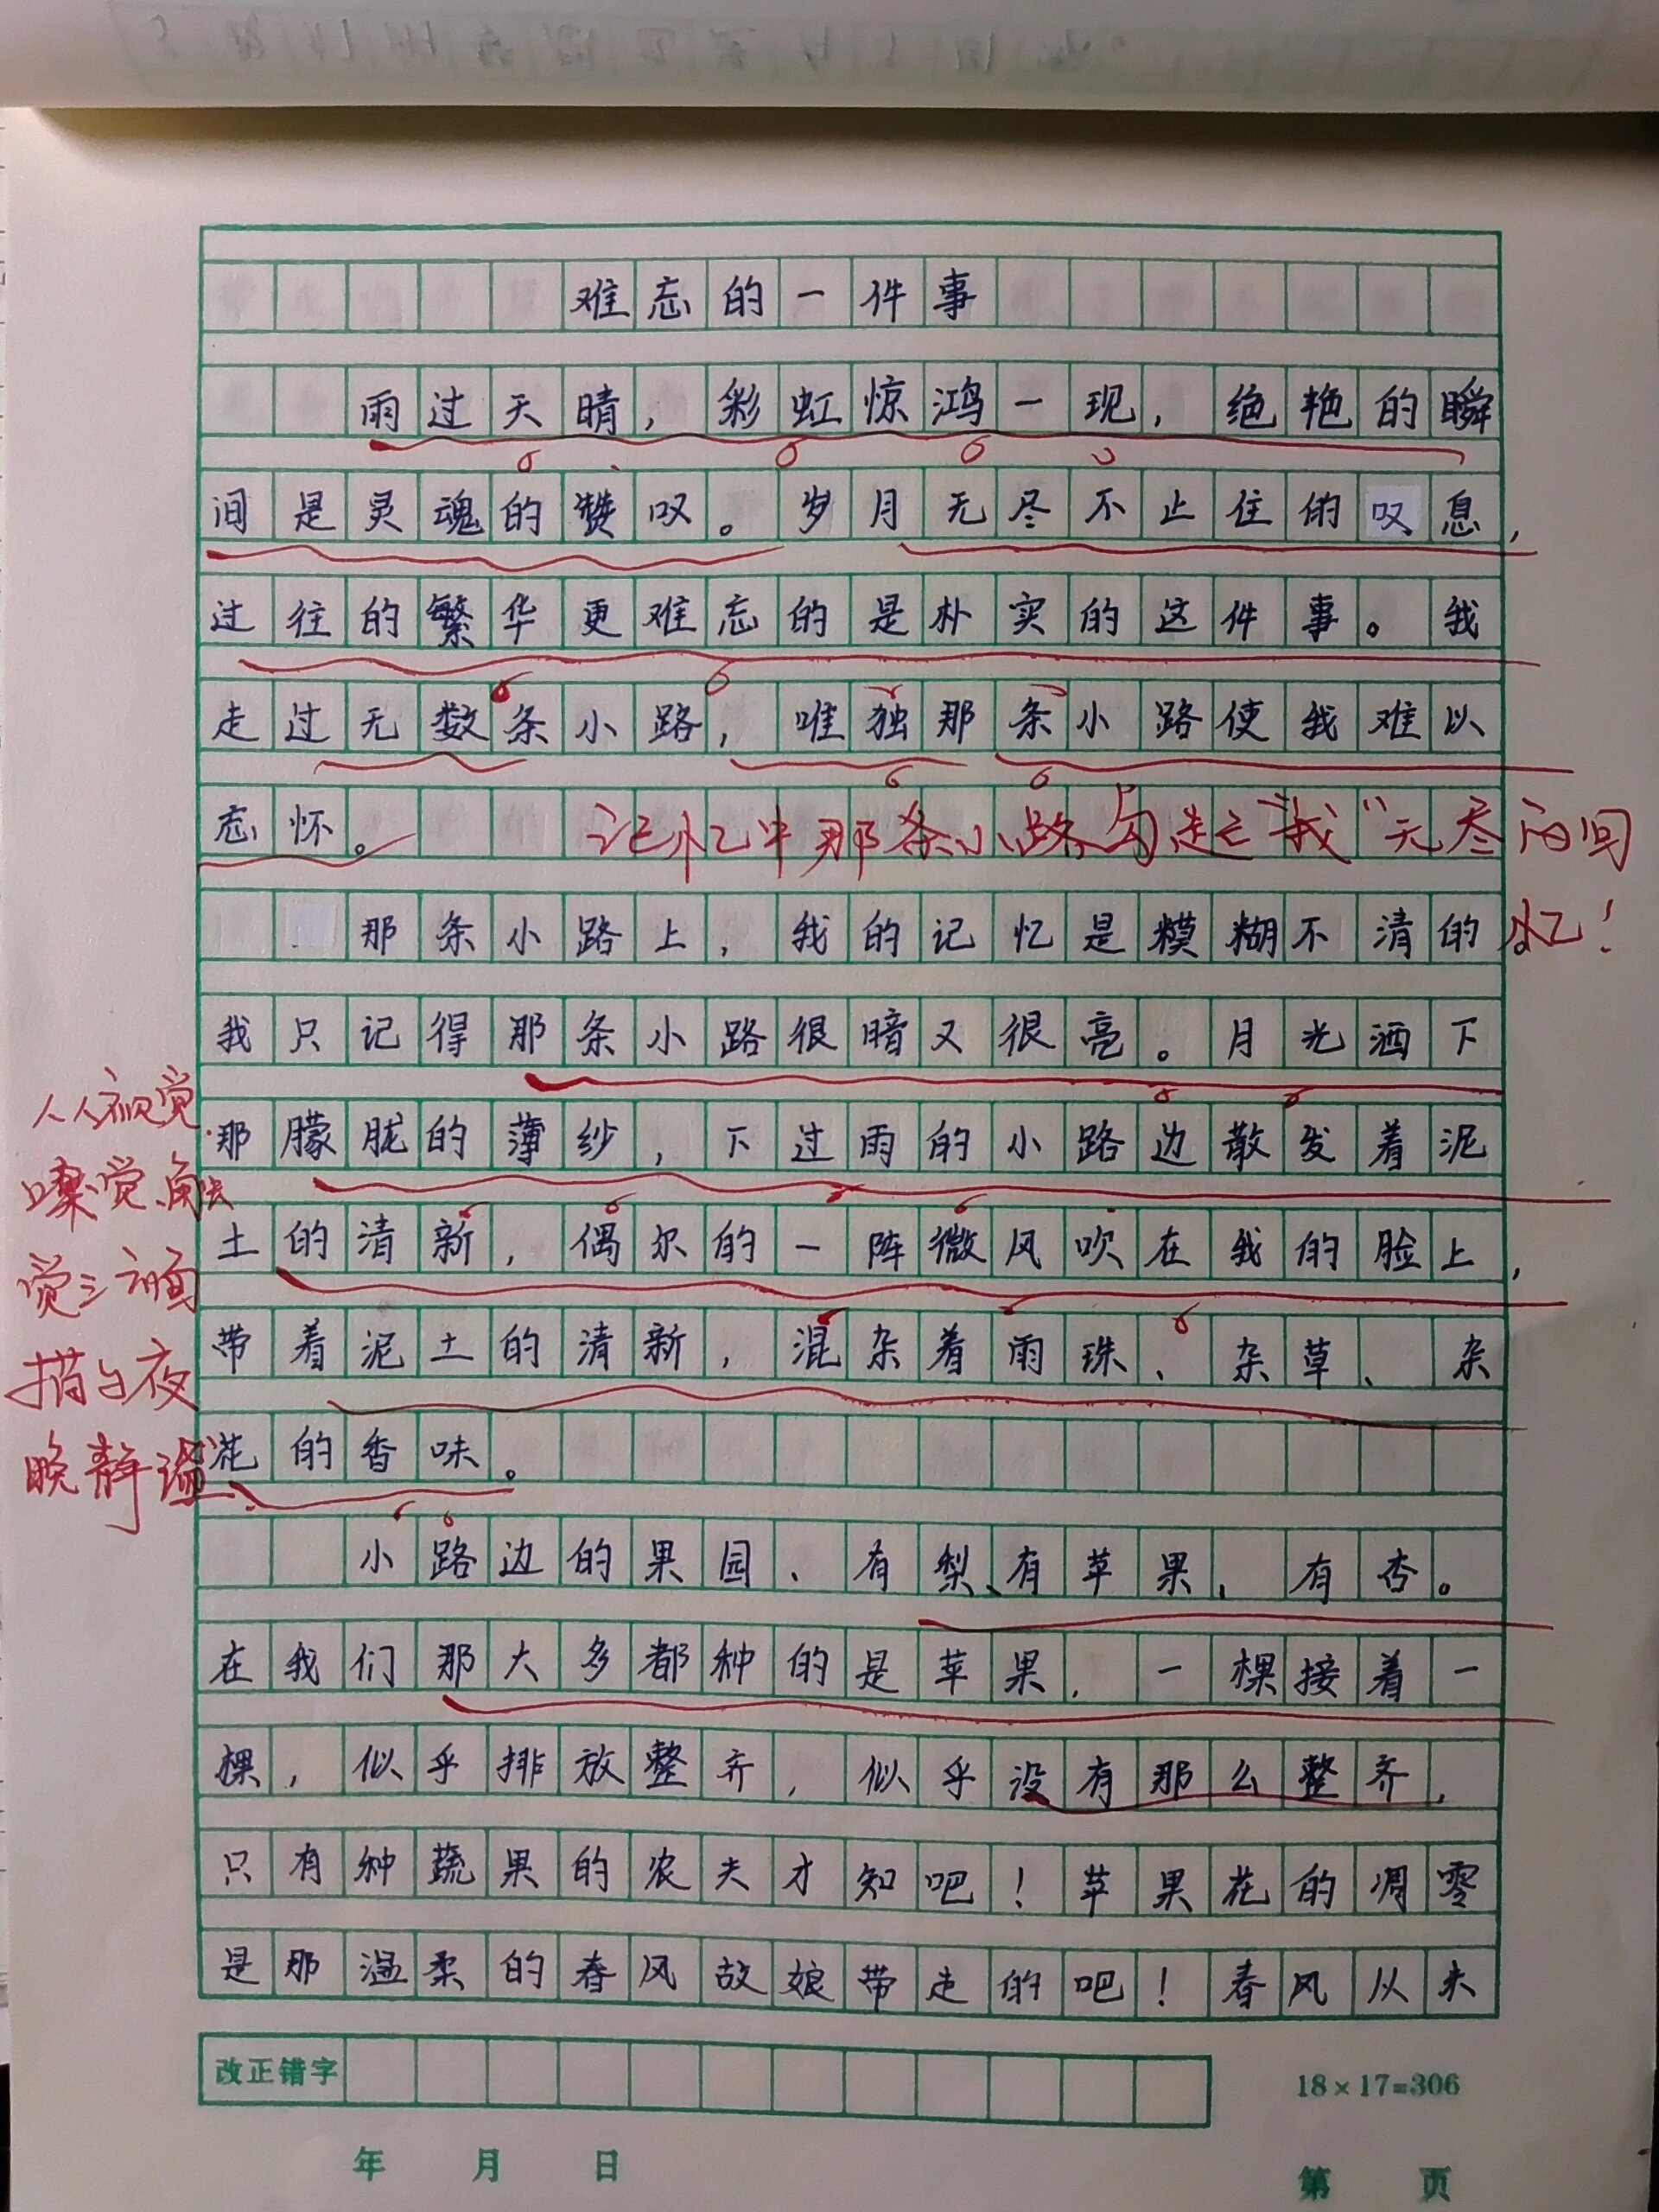 难忘的一件事
雨过天晴，彩虹惊鸿一现，绝艳的瞬
间是灵魂的赞叹。岁月无尽不止住的叹息，
过往的繁华更难忘的是朴实的这件事。我
走过无数条小路，唯独那条小路使我难以
忘怀。
记忆中那条小路勾起“我”无尽的回
忆！
那条小路上，我的记忆是模糊不清的。
我只记得那条小路很暗又很亮。月光洒下
那朦胧的薄纱，下过雨的小路边散发着泥
土的清新，偶尔的一阵微风吹在我的脸上，
带着泥土的清新，混杂着雨珠、杂草、杂
花的香味。
从视觉
嗅觉、触
觉三方面
描写夜
晚静谧
小路边的果园、有梨、有苹果、有杏。
在我们那大多都种的是苹果，一棵接着一
棵，似乎排放整齐，似乎没有那么整齐，
只有种蔬果的农夫才知吧！苹果花的凋零
是那温柔的春风故娘带走的吧！春风从未
改正错字
18×17=306
年 月 日
第 页